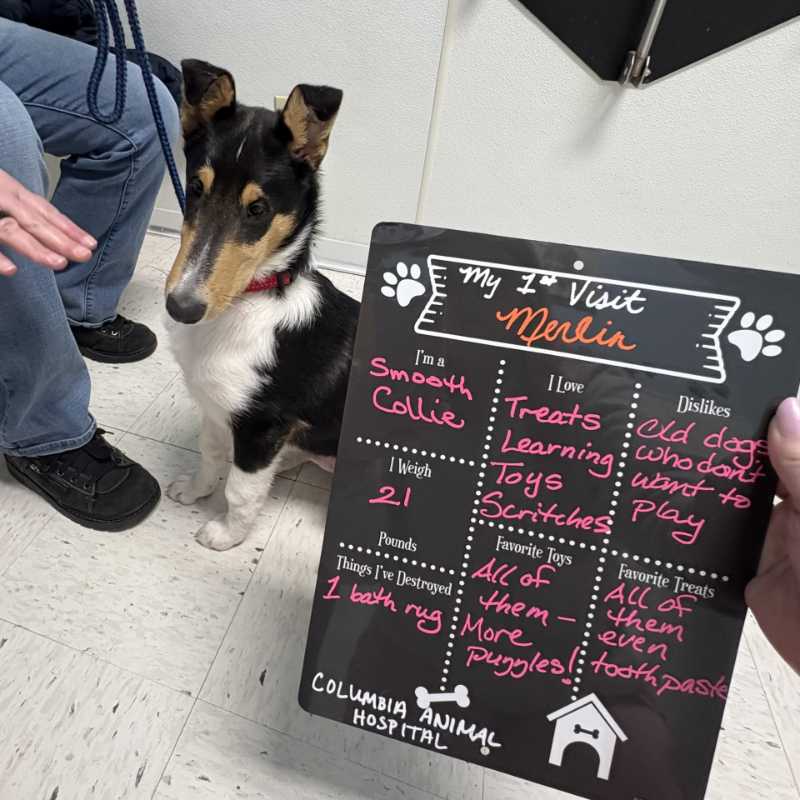 My 1st Visit
Merlin
I'm a
Smooth
Collie
I Weigh
21
Pounds
Things I've Destroyed
1 bath rug
I Love
Treats
Learning
Toys
Scritches
Favorite Toys
All of
them –
More
puggles!
Dislikes
Old dogs
who don't
want to
play
Favorite Treats
All of
them
even
toothpaste
COLUMBIA ANIMAL
HOSPITAL